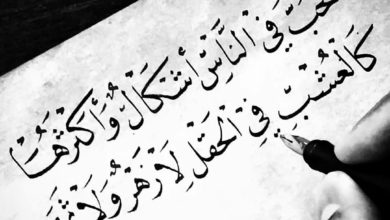 الحُبُّ فِي النَّاسِ أَشْكَالٌ وَأَكْثَرُهَا
كَالْعُشْبِ فِي الْحَقْلِ لَا زَهْرٌ وَلَا